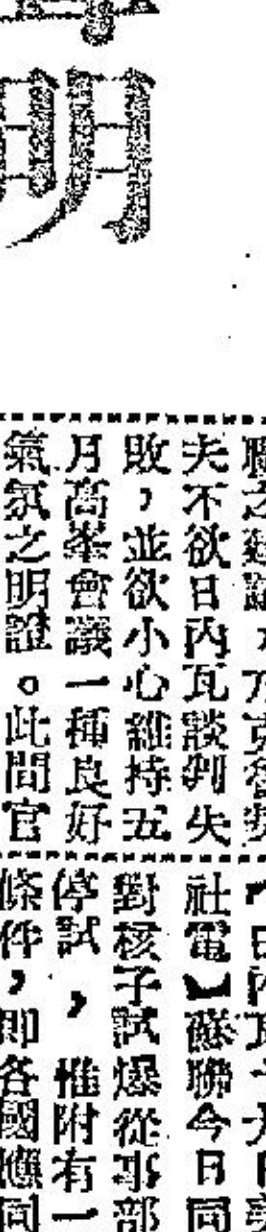 明
聯之建議，乃克魯
夫不欲日內瓦談判失
敗，並欲小心維持五
月高峯會議一種良好
氣氛之明證。此間官
【日內瓦十九日
社電】蘇聯今日同
對核子試爆從事部
停試，惟附有一
條件，即各國應同